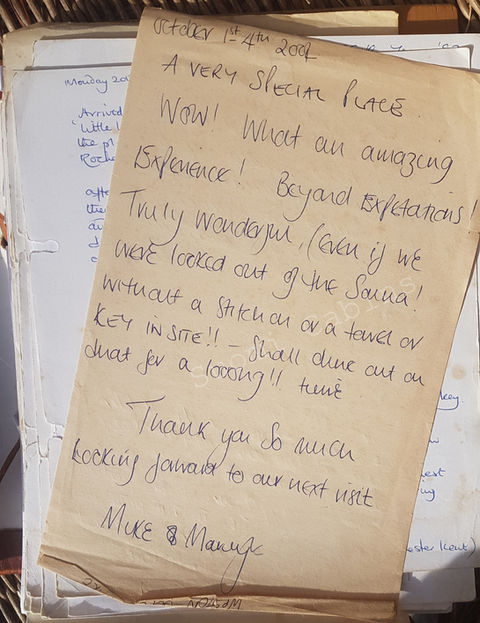 October 1st 4th 200
A VERY SPECIAL PLACE
WOW! What an amazing
Experience! Beyond Expetations!
Truly wonderful, (even if we
were locked out of the Sauna!
without a stitch on or a towel or
KEY IN SITE!! - Shall dine out on
that for a loooong!! time
Thank you so much
Looking forward to our next visit
MIKE &
Monday 20
Arrived
'Little
the p
Roche
afte
the
key.
ester Kent)